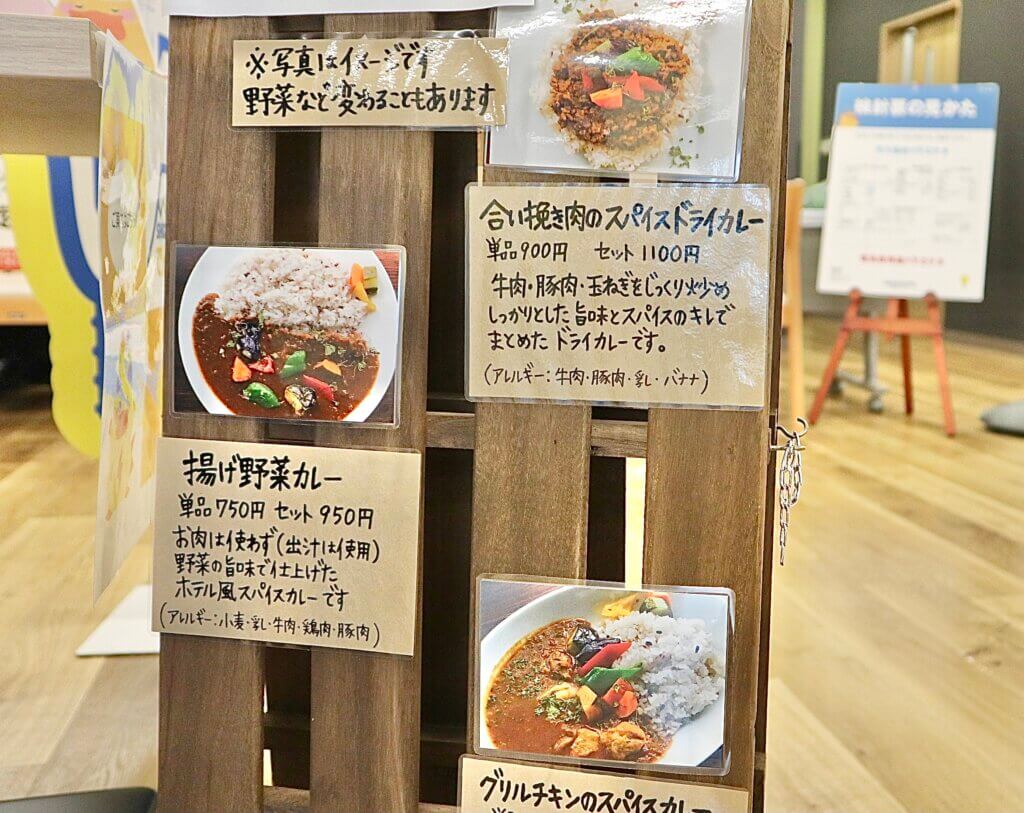 ※写真はイメージです
野菜など変わることもあります
合い挽き肉のスパイスドライカレー
単品900円 セット1100円
牛肉・豚肉・玉ねぎをじっくり炒め
しっかりとした旨味とスパイスのキレで
まとめた ドライカレーです。
(アレルギー:牛肉・豚肉・乳・バナナ)
揚げ野菜カレー
単品750円 セット950円
お肉は使わず(出汁は使用)
野菜の旨味で仕上げた
ホテル風スパイスカレーです
(アレルギー:小麦・乳・牛肉・鶏肉・豚肉)
グリルチキンのスパイスカレー
の見かた